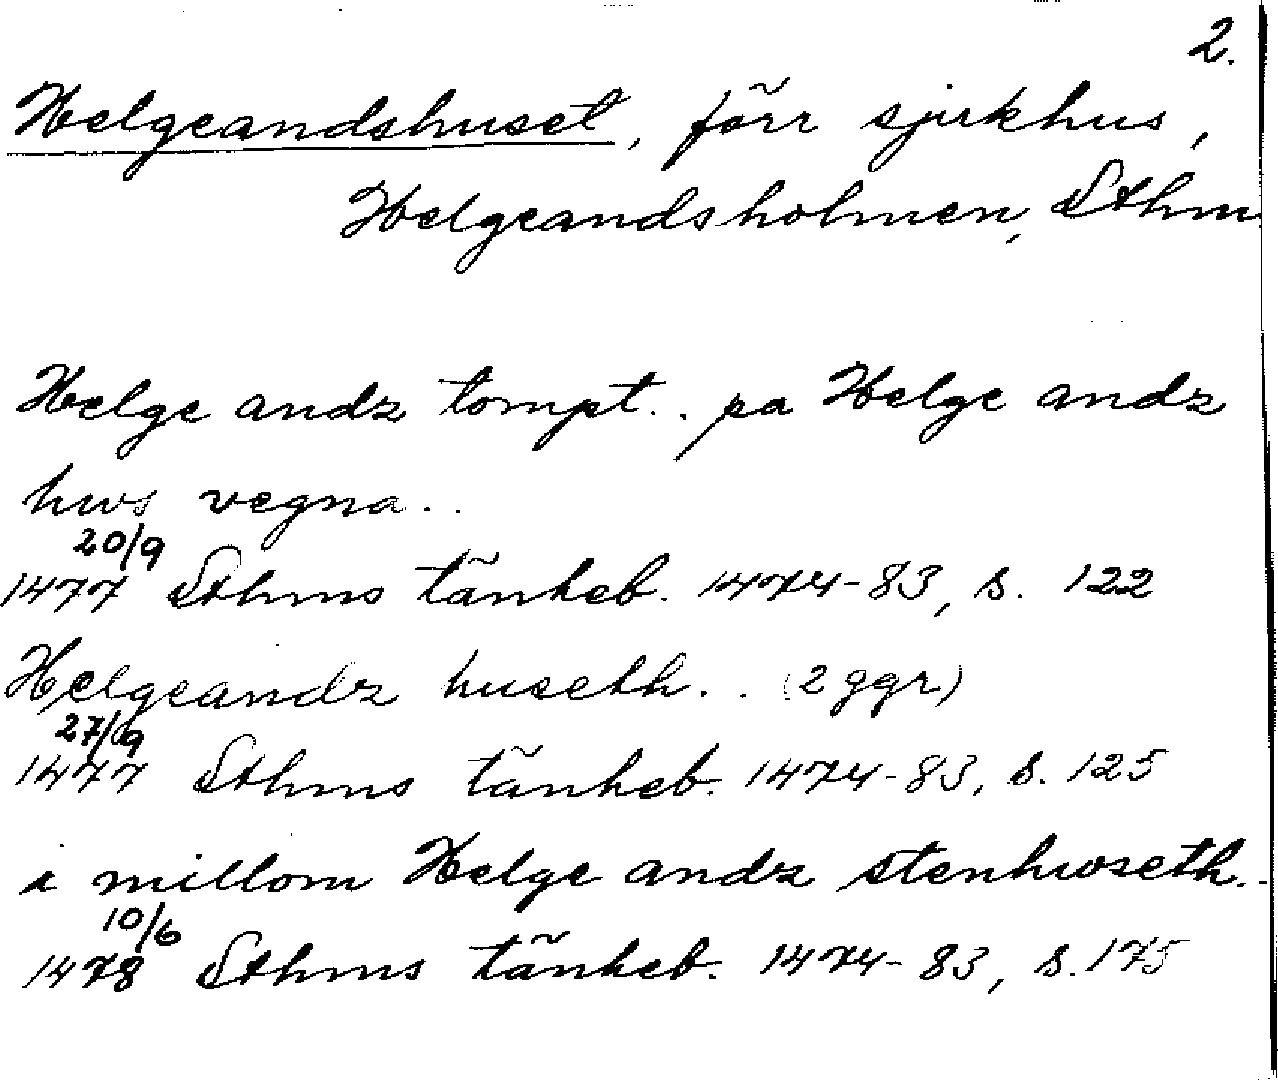 2.
Helgeandshuset, förr sjukhus,
Helgeandsholmen, Sthm
Helge andz tompt.. pa Helge andz
hws vegna..
20/9
1477 Sthms tänkeb. 1474-83, s. 122
Helgeandz huseth.. (2 ggr)
27/9
1477 Sthms tänkeb. 1474-83, s. 125
i millom Helge andz stenhwseth..
10/6
1478 Sthms tänkeb. 1474-83, s. 175